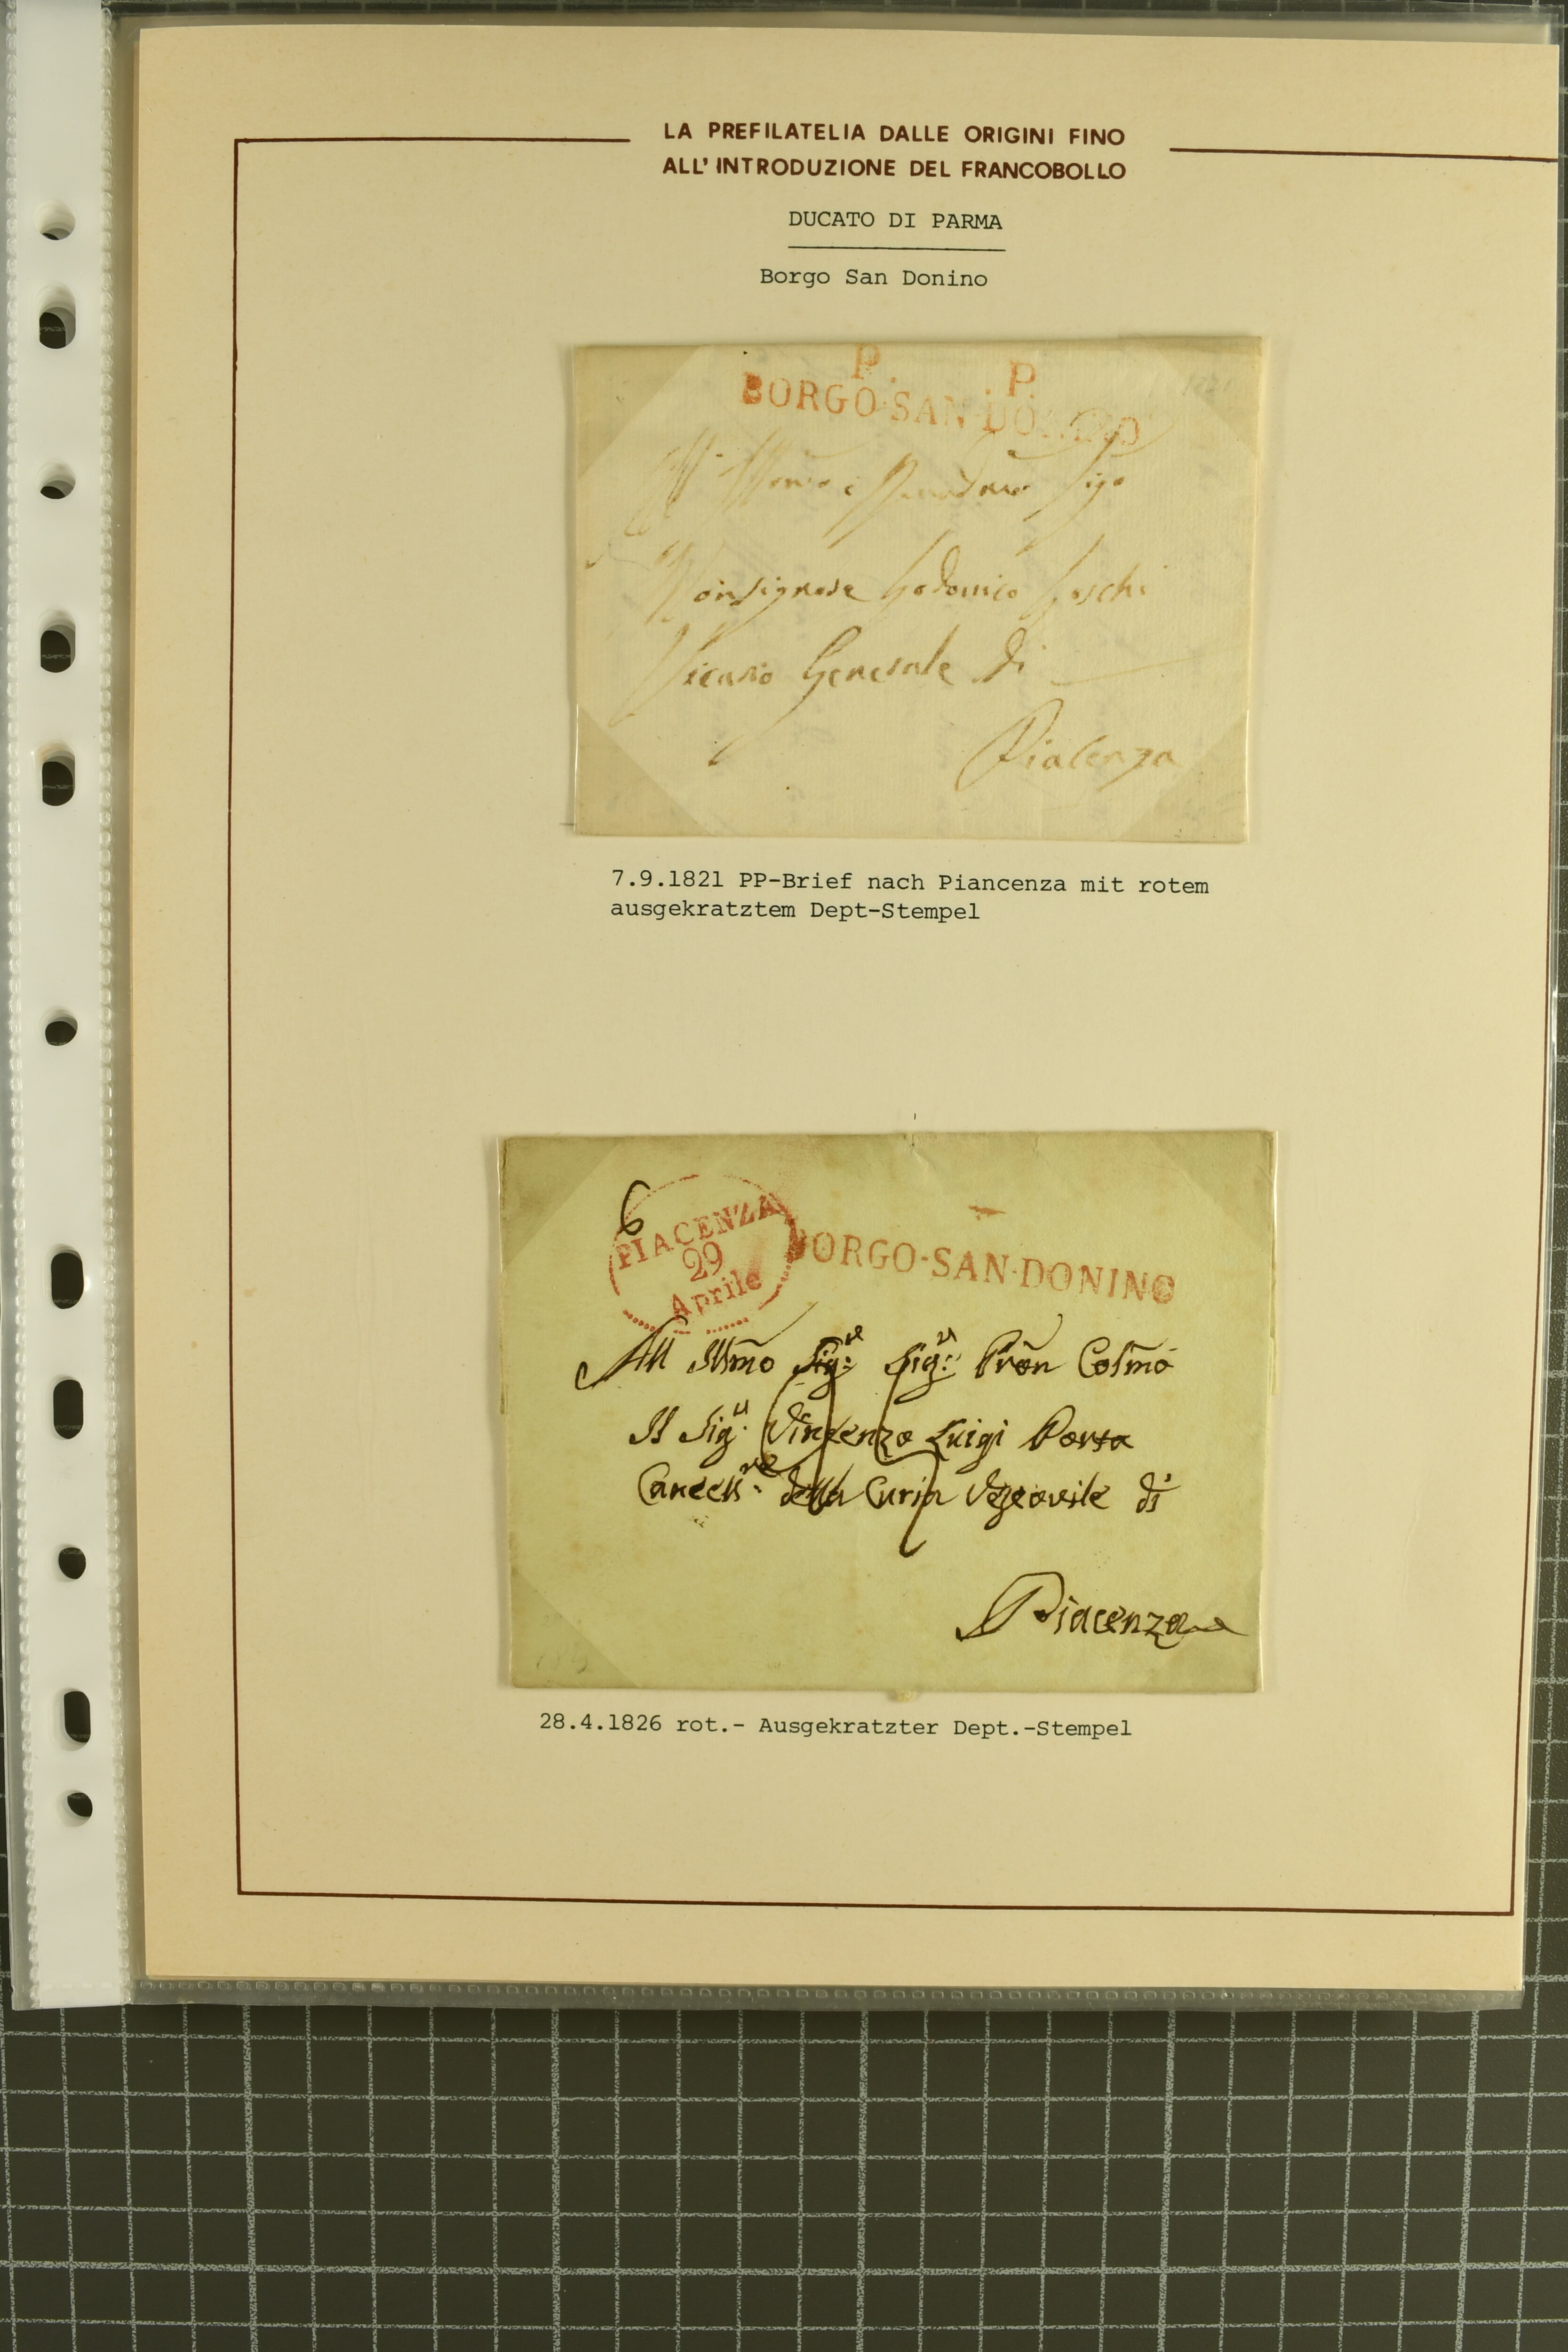 LA PREFILATELIA DALLE ORIGINI FINO
ALL' INTRODUZIONE DEL FRANCOBOLLO
DUCATO DI PARMA
Borgo San Donino
P. . P.
BORGO-SAN-DONINO
Monsignore Lodovico Loschi
Vicario Generale di
Piacenza
7.9.1821 PP-Brief nach Piancenza mit rotem
ausgekratztem Dept-Stempel
6
PIACENZA
29
Aprile
BORGO-SAN-DONINO
All Illmo Sig:r Sig:r Pron Colmo
Il Sig.r Vincenzo Luigi Porta
della Curia di
Piacenza
28.4.1826 rot.- Ausgekratzter Dept.-Stempel